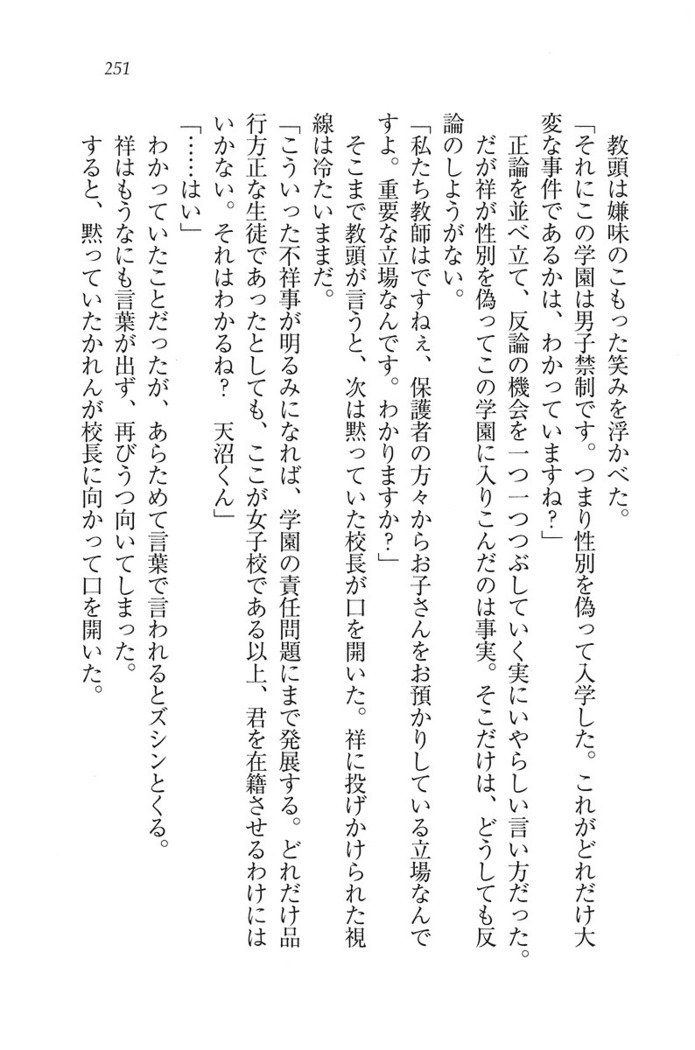 251
教頭は嫌味のこもった笑みを浮かべた。
「それにこの学園は男子禁制です。つまり性別を偽って入学した。これがどれだけ大
変な事件であるかは、わかっていますね？」
正論を並べ立て、反論の機会を一つ一つつぶしていく実にいやらしい言い方だった。
だが祥が性別を偽ってこの学園に入りこんだのは事実。そこだけは、どうしても反
論のしようがない。
「私たち教師はですねぇ、保護者の方々からお子さんをお預かりしている立場なんで
すよ。重要な立場なんです。わかりますか？」
そこまで教頭が言うと、次は黙っていた校長が口を開いた。祥に投げかけられた視
線は冷たいままだ。
「こういった不祥事が明るみになれば、学園の責任問題にまで発展する。どれだけ品
行方正な生徒であったとしても、ここが女子校である以上、君を在籍させるわけには
いかない。それはわかるね？　天沼くん」
「……はい」
わかっていたことだったが、あらためて言葉で言われるとズシンとくる。
祥はもうなにも言葉が出ず、再びうつ向いてしまった。
すると、黙っていたかれんが校長に向かって口を開いた。